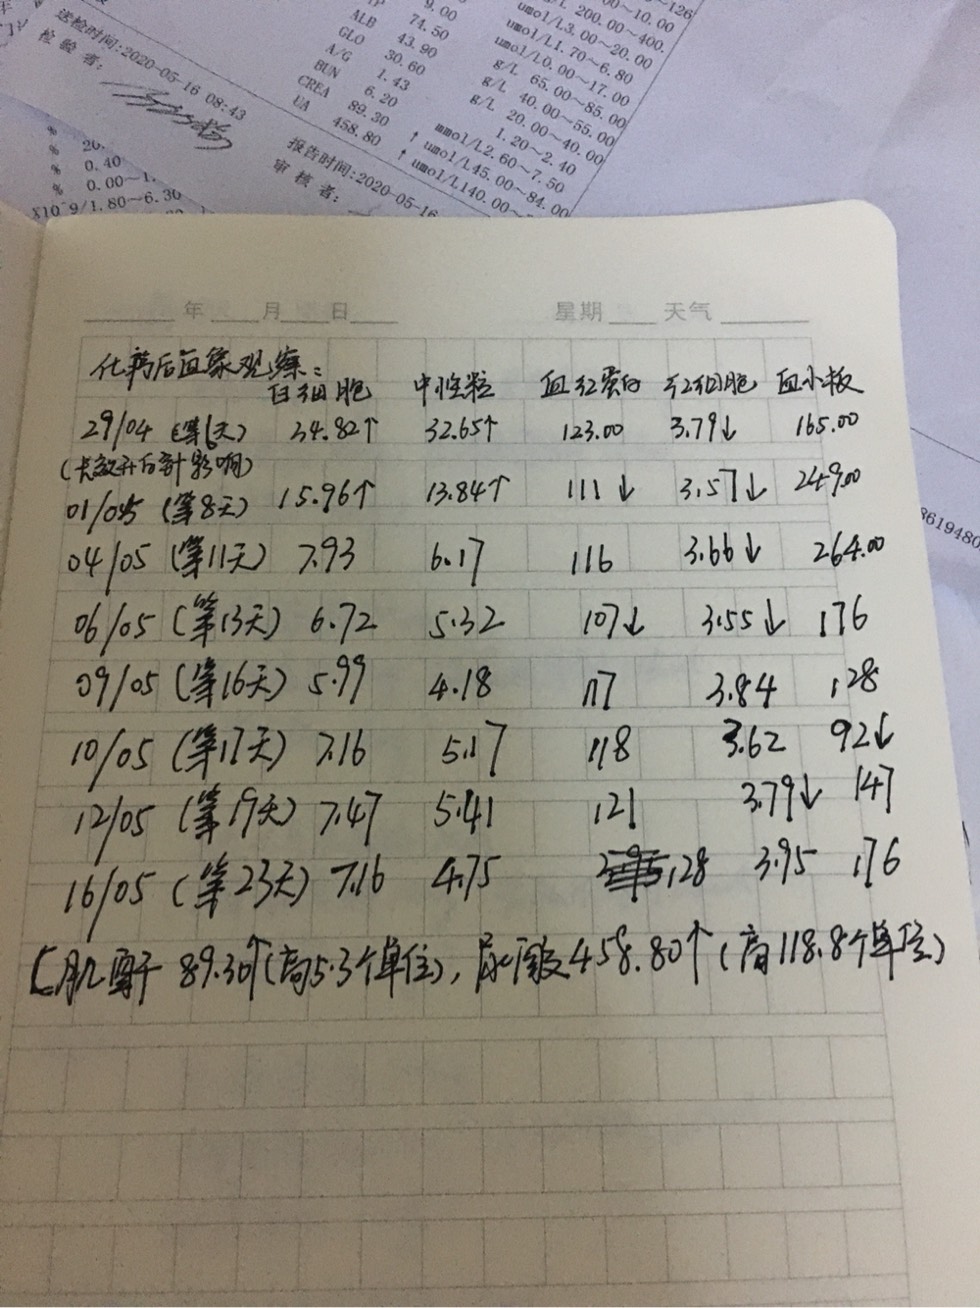 126
9.00 0~10.00
ALB 74.50 umol/L 200.00~400.
GLO 43.90 umol/L3.00~20.00
A/G 30.60 umol/L1.70~6.80
BUN 1.43 umol/L0.00~17.00
CREA 6.20 g/L 65.00~85.00
UA 89.30 g/L 40.00~55.00
458.80 g/L 20.00~40.00
1.20~2.40
↑ mmol/L2.60~7.50
↑ umol/L45.00~84.00
umol/L140.00~
送检时间:2020-05-16 08:43
检 验 者:
报告时间:2020-05-16
审 核 者:
% 20.
% 0.40
% 0.00~1.
X10^9/1.80~6.30
8619480
年 月 日 星期 天气
化药后血象观察:
白细胞 中性粒 血红蛋白 红细胞 血小板
29/04 (第6天) 34.82↑ 32.65↑ 123.00 3.79↓ 165.00
(长效升白针影响)
01/05 (第8天) 15.96↑ 13.84↑ 111↓ 3.57↓ 249.00
04/05 (第11天) 7.93 6.17 116 3.66↓ 264.00
06/05 (第13天) 6.72 5.32 107↓ 3.55↓ 176
09/05 (第16天) 5.99 4.18 117 3.84 128
10/05 (第17天) 7.16 5.17 118 3.62 92↓
12/05 (第19天) 7.47 5.41 121 3.79↓ 147
16/05 (第23天) 7.16 4.75 128 3.95 176
[肌酐 89.30↑(高5.3个单位), 尿酸458.80↑(高118.8个单位)